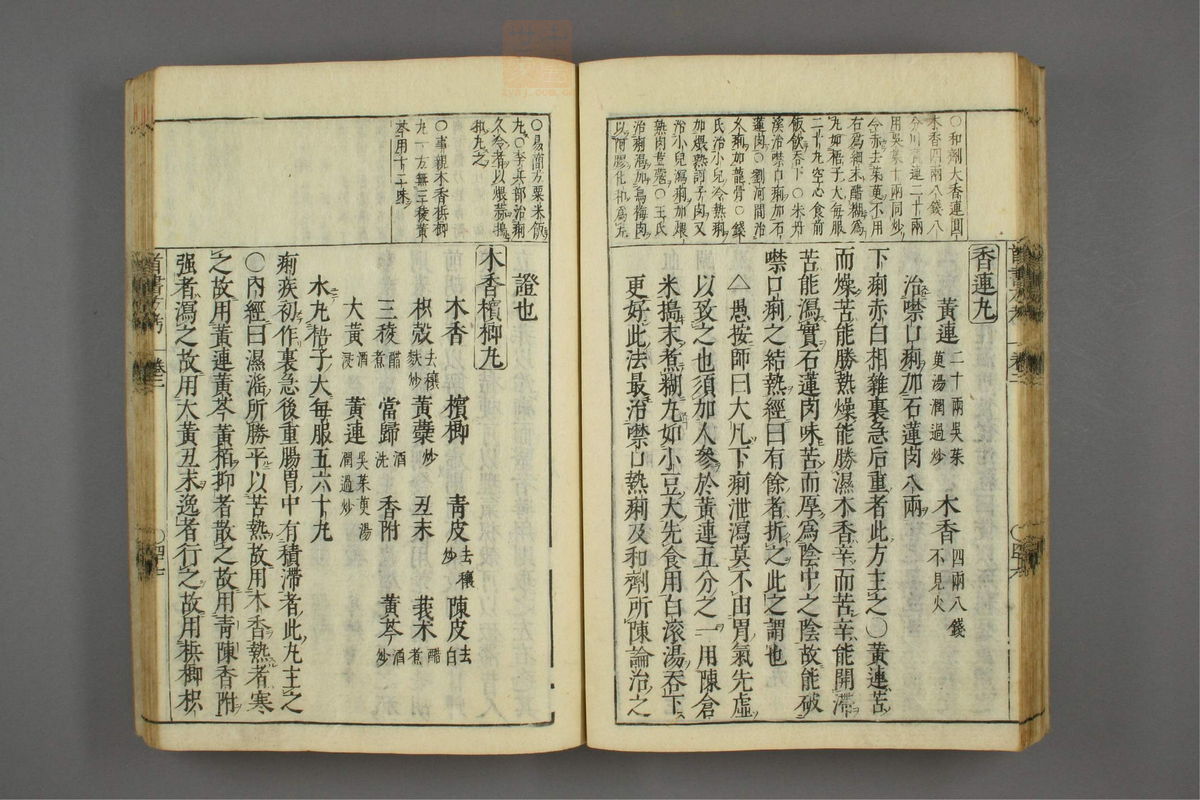 ○和劑大香連圓
木香四兩八錢八
分川黃連二十兩
用吳茱十兩同炒
令赤去茱萸不用
右爲細末醋糊爲
丸如梧子大每服
二十丸空心食前
飯飲吞下○朱丹
溪治噤口痢加石
蓮肉○劉河間治
久痢加龍骨○錢
氏治小兒冷熱痢
加煨熟訶子肉又
治小兒瀉痢加煨
熟肉荳蔻○王氏
治痢渴加烏梅肉
以阿膠化和爲丸
香連丸
黃連二十兩吳茱萸湯潤過炒 木香四兩八錢不見火
治噤口痢加石蓮肉八兩
下痢赤白相雜裏急后重者此方主之○黃連苦
而燥苦能勝熱燥能勝濕木香辛而苦辛能開滯
苦能瀉實石蓮肉味苦而厚爲陰中之陰故能破
噤口痢之結熱經曰有餘者折之此之謂也
△愚按師曰大凡下痢泄瀉莫不由胃氣先虛
以致之也須加人參於黃連五分之一用陳倉
米搗末煮糊丸如小豆大先食用白滾湯吞下
更好此法最治噤口熱痢及和劑所陳論治之
首書方考 卷二 ○四十六
○易簡方粟米飯
丸○李兵部治痢
久冷者以煨蒜搗
和丸之
○事親木香梹榔
丸一方無三稜黃
芩用十二味
證也
木香檳榔丸
木香 檳榔 青皮去穰炒 陳皮去白
枳殼去穰麸炒 黃蘗炒 丑末 莪朮醋煮
三稜醋煮 當歸酒洗 香附 黃芩酒炒
大黃酒浸 黃連吳茱萸湯潤過炒
水丸梧子大每服五六十丸
痢疾初作裏急後重腸胃中有積滯者此丸主之
○內經曰濕淫所勝平以苦熱故用木香熱者寒
之故用黃連黃芩黃栢抑者散之故用青陳香附
强者瀉之故用大黃丑末逸者行之故用梹榔枳
首書方考 卷二 ○四十七